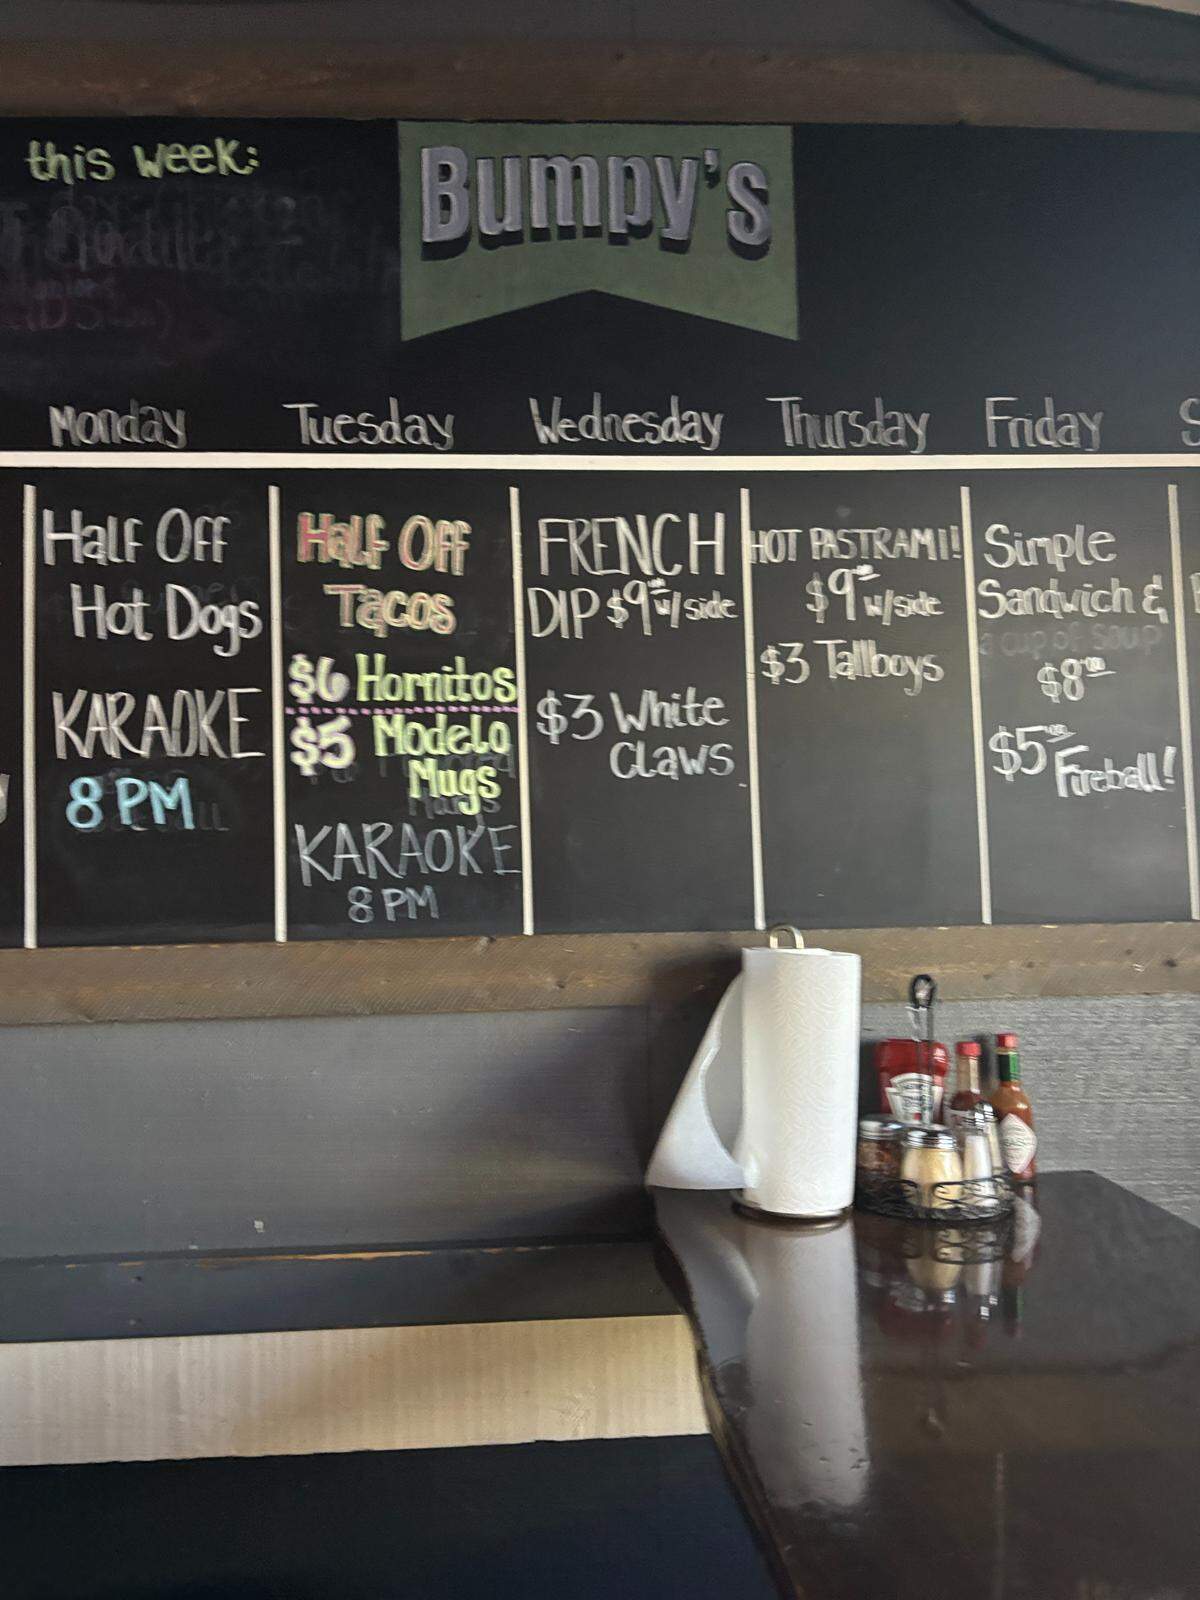 this week:
Bumpy's
Monday
Tuesday
Wednesday
Thursday
Friday
Half Off
Hot Dogs
KARAOKE
8 PM
Half Off
Tacos
$6 Hornitos
$5 Modelo
Mugs
KARAOKE
8 PM
FRENCH
DIP $9.00 w/side
$3 White
Claws
HOT PASTRAMI!
$9.00 w/side
$3 Tallboys
Simple
Sandwich &
a cup of soup
$8.00
$5.00 Fireball!